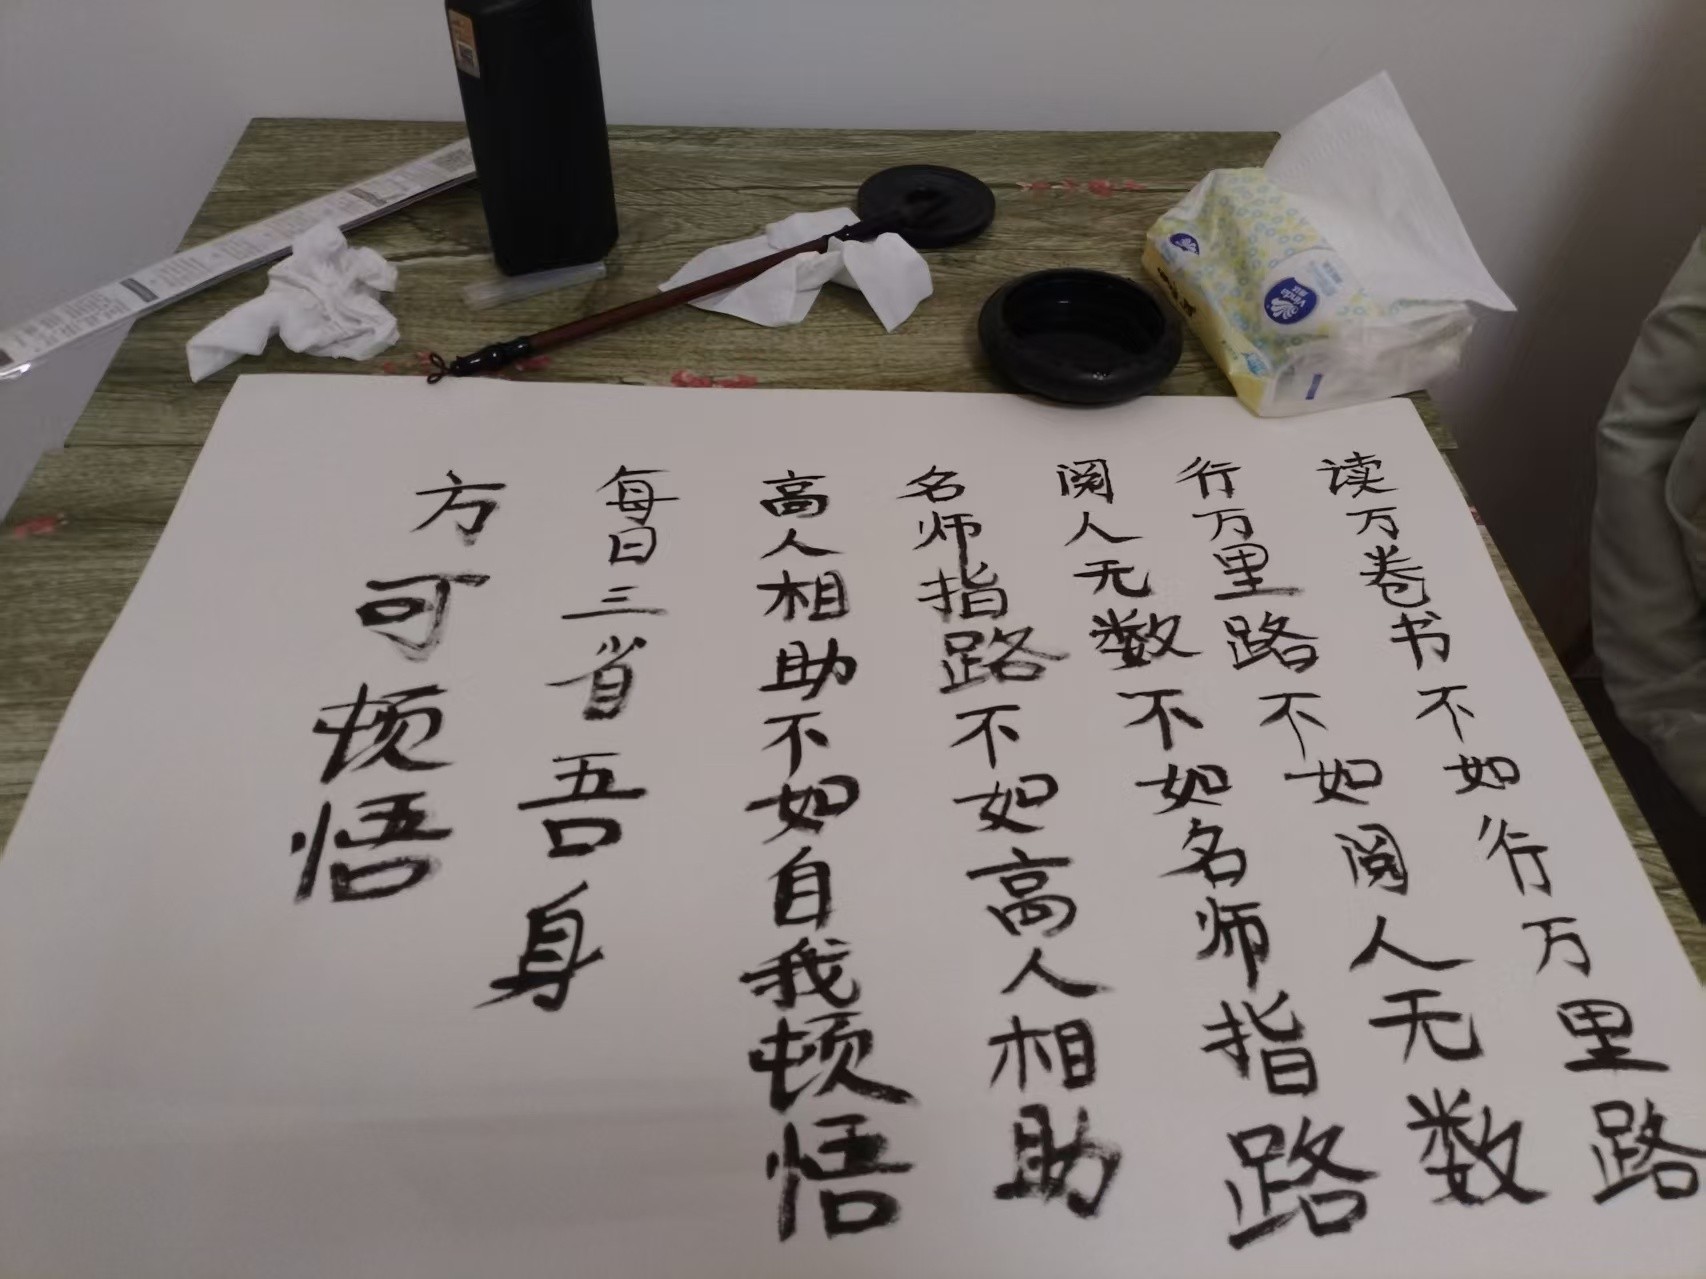 读万卷书不如行万里路
行万里路不如阅人无数
阅人无数不如名师指路
名师指路不如高人相助
高人相助不如自我顿悟
每日三省吾身
方可顿悟
Vinda